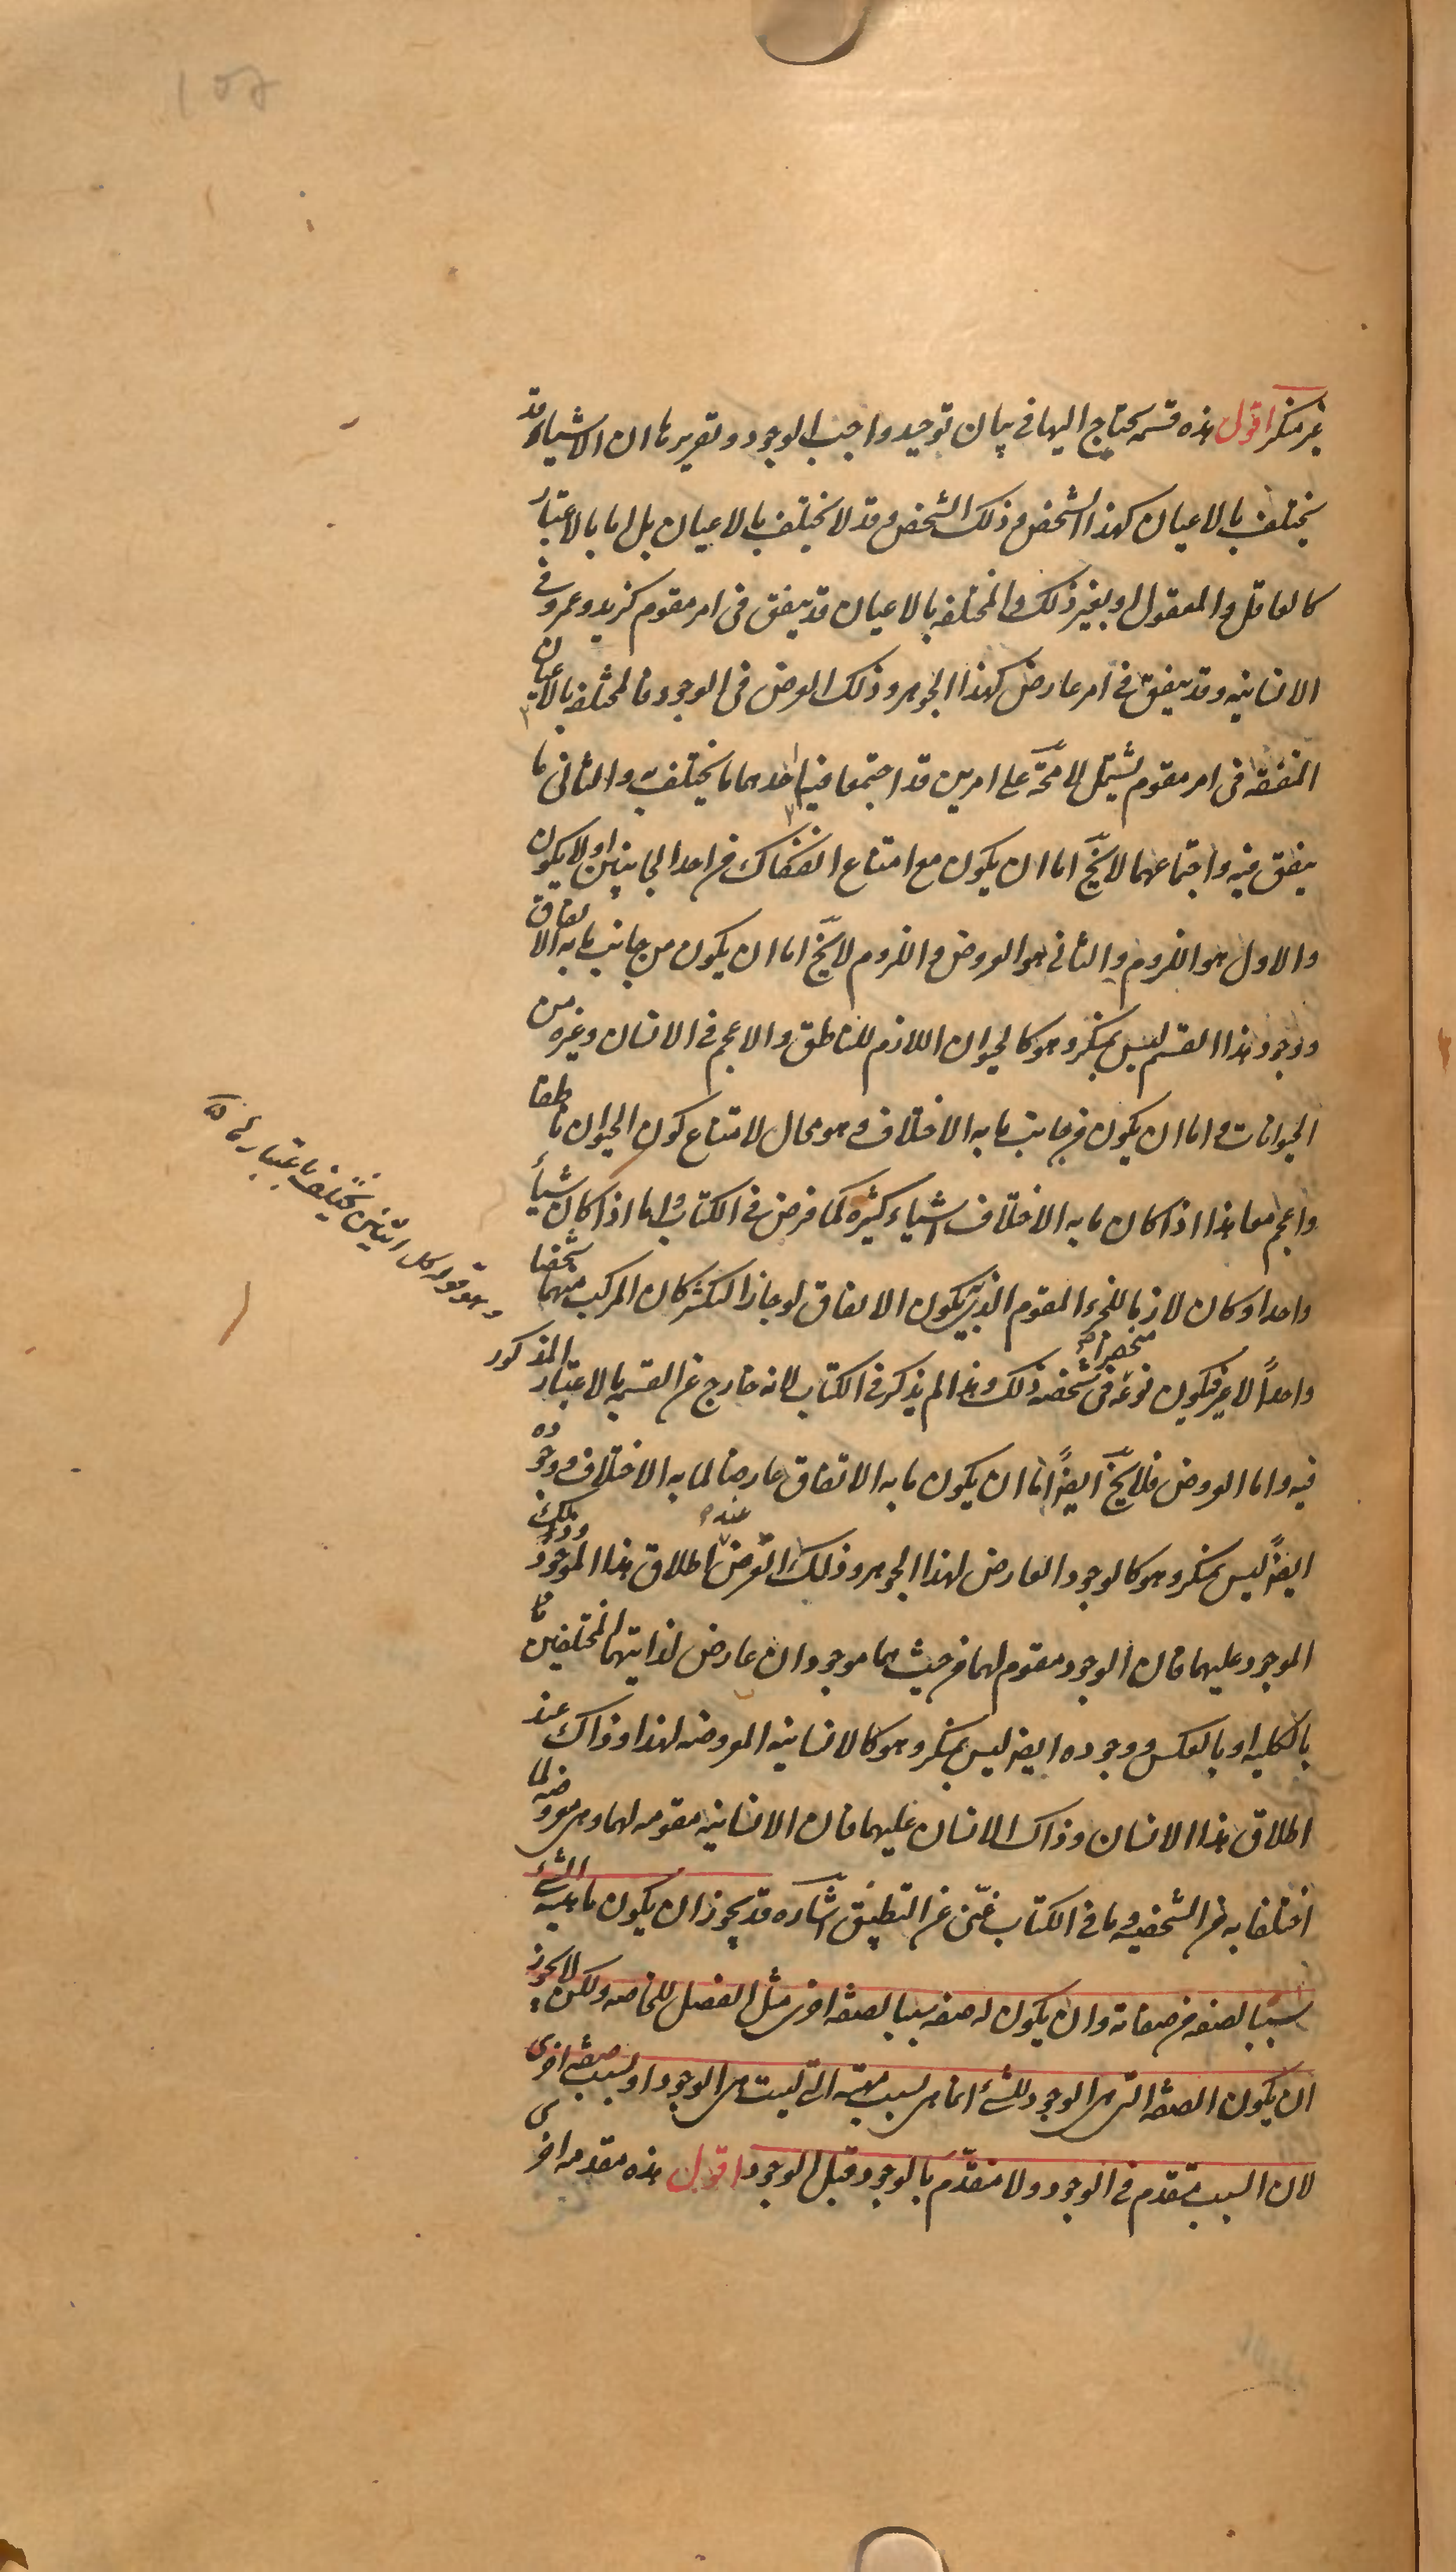 غير منكر اقول هذه قسمه يحتاج اليها فى بيان توحيد واجب الوجود و تقريرها ان الاشياء قد
يختلف بالاعيان كهذا الشخص و ذلك الشخص و قد لا يختلف بالاعيان بل اما بالاعتبار
كالعاقل و المعقول او بغير ذلك و المختلفه بالاعيان قد يتفق فى امر مقوم كزيد و عمرو فى
الانسانيه و قد يتفق فى امر عارض كهذا الجوهر و ذلك العرض فى الوجود فالمختلفه بالاعيان
المتفقه فى امر مقوم يشتمل لا محة على امرين قد اجتمعا فيها احدهما ما يختلف به و الثانى ما
يتفق فيه و اجتماعهما لا يخ اما ان يكون مع امتناع انفكاك من احد الجانبين او لا يكون
و الاول هو اللزوم و الثانى هو العروض و اللزوم لا يخ اما ان يكون من جانب ما به الاتفاق
و وجود هذا القسم ليس بمنكر و هو كالحيوان اللازم للناطق و الاعجم فى الانسان و غيره من
الحيوانات و اما ان يكون من جانب ما به الاختلاف و هو محال لامتناع كون الحيوان ناطقا
و اعجم معا هذا اذا كان ما به الاختلاف اشياء كثيره كما فرض فى الكتاب و اما اذا كان شيأ
واحدا و كان لازما للجزء المقوم الذى به يكون الاتفاق لو جاز التكثر كان المركب منهما شخصا
واحداً لا غير فيكون نوعه منحصرا فى شخصه ذلك و هذا لم يذكر فى الكتاب لانه خارج عن القسمه بالاعتبار المذكور
فيه و اما العروض فلا يخ ايضاً اما ان يكون ما به الاتفاق عارضا لما به الاختلاف و وجوده
ايضاً ليس بمنكر و هو كالوجود العارض لهذا الجوهر و ذلك العرض عند اطلاق هذا الموجود و ذلك
الموجود عليهما فان الوجود مقوم لهما من حيث هما موجودان عارض لذاتيهما المختلفين
بالكليه او بالعكس و وجوده ايضا ليس بمنكر و هو كالانسانيه المعروضه لهذا و ذاك عند
اطلاق هذا الانسان و ذاك الانسان عليهما فان الانسانيه مقومه لهما و هى معروضه لما
اختلفا به من الشخصيه و ما فى الكتاب غنى عن التطبيق اشاره قد يجوز ان يكون ماهيه الشئ
سببا لصفه من صفاته و ان يكون له صفه سببا لصفه اخرى مثل الفصل للخاصه و لكن لا يجوز
ان يكون الصفه التى هى الوجود للشئ انما هى بسبب ماهيته التى ليست هى الوجود او بسبب صفه اخرى
لان السبب متقدم فى الوجود و لا متقدم بالوجود قبل الوجود اقول هذه مقدمه اخرى
و هو قوله كل اثنين يختلف باعتبار